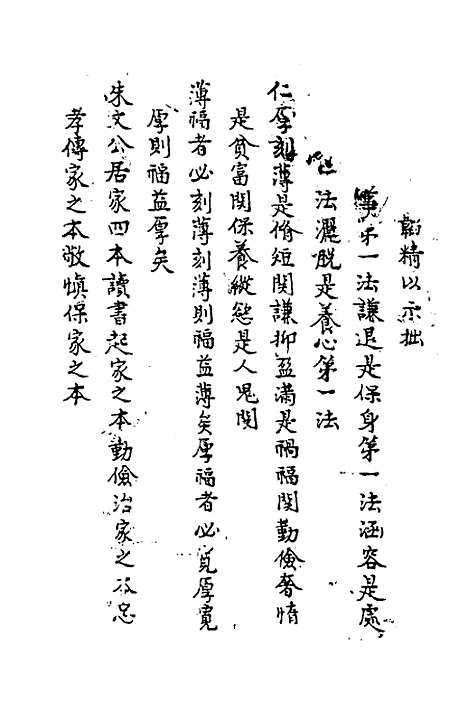 韜精以示拙
第一法謙退是保身第一法涵容是處
法灑脫是養心第一法
仁厚刻薄是脩短関謙抑盈滿是禍福関勤儉奢惰
是貧富関保養縱慾是人鬼関
薄福者必刻薄刻薄則福益薄矣厚福者必寬厚寬
厚則福益厚矣
朱文公居家四本讀書起家之本勤儉治家之本忠
孝傳家之本敬慎保家之本